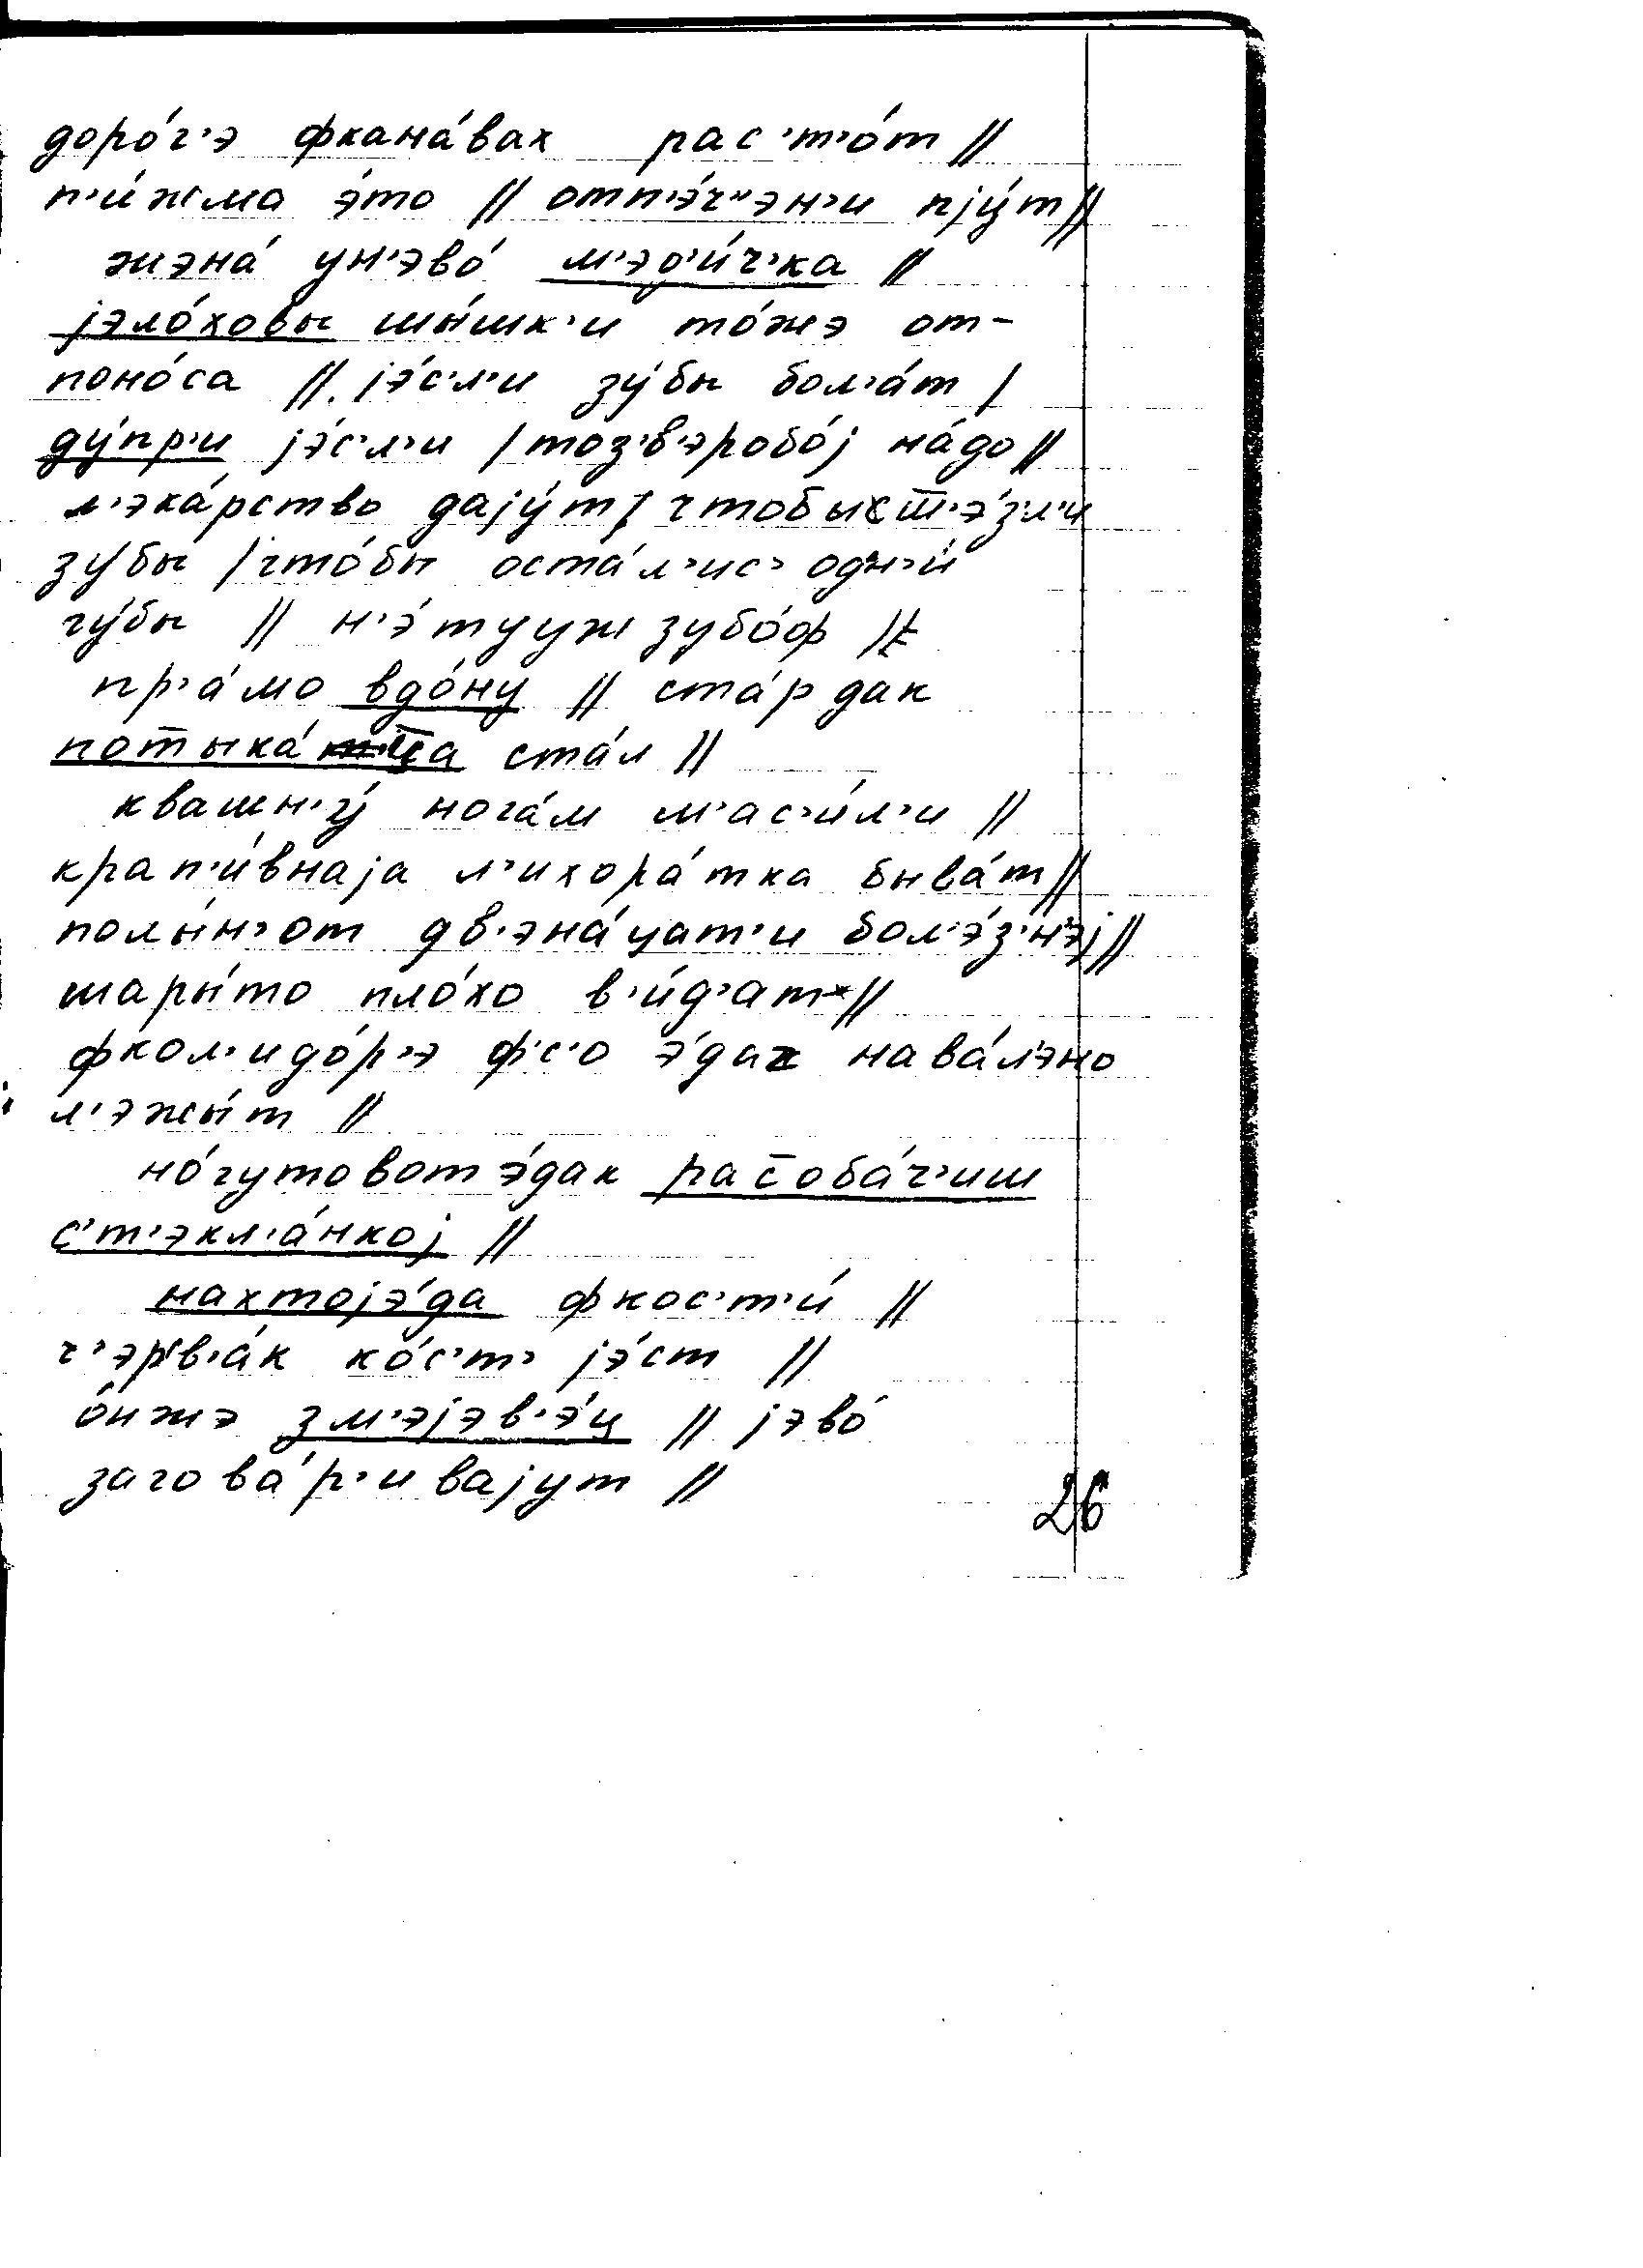 доро́г'э фкана́вах рас'т'о́т //
п'и́жма э́то // отп'э́ч'эн'и пjу́т //
жэна́ ун'эво́ м'эд'и́ч'ка //
jэло́ховы шы́шк'и то́жэ от-
поно́са // jэ́с'л'и зу́бы бол'а́т /
ду́пр'и jэ́с'л'и / тоз'в'эробо́j на́до //
л'эка́рство даjу́т / чтобы т̄'э́зл'и
зубы / что́бы оста́л'ис' одн'и́
гу́бы // н'э́ту уж зубо́ф //
пр'а́мо вдо́ну // ста́р дак
пот̄ыка́ц̄а ста́л //
квашн'у́ нога́м м'ас'и́л'и //
крап'и́внаjа л'ихора́тка быва́т //
полы́н' от дв'эна́цат'и бол'э́з'н'эj //
шары́то пло́хо в'и́д'ат //
фкол'идо́р'э ф'с'о э́дак нава́л'эно
л'эжы́т //
но́гутовот э́дак рас̄оба́ч'иш
с'т'экл'а́нкоj //
нахтоjэ́да фкос'т'и́ //
ч'эрв'а́к ко́с'т' jэ́ст //
о́нжэ зм'эjэв'э́ц // jэво́
загова́р'иваjут //
26